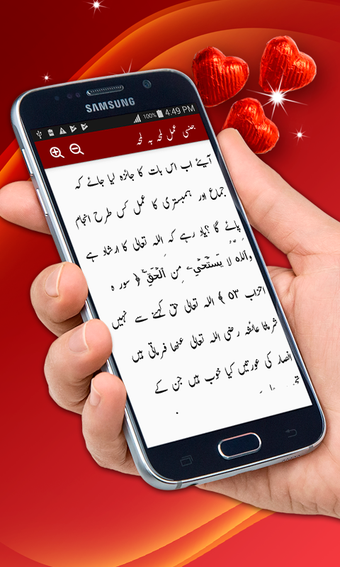 SAMSUNG
100% 4:49 PM
جنسی عمل لمحہ بہ لمحہ
آیئے اب اس بات کا جائزہ لیا جائے کہ
جماع اور ہمبستری کا عمل کس طرح انجام
پائے گا؟یاد رہے کہ اللہ تعالی کا ارشاد ہے
وَاللّٰهُ لَا يَسْتَحْيٖ مِنَ الْحَقِّ ﴿ سورہ
احزاب ٥٣ ﴾ اللہ تعالی حق کہنے سے نہیں
شرماتا عائشہ رضی اللہ تعالی عنھا فرماتی ہیں
انصار کی عورتیں کیا خوب ہیں جن کے